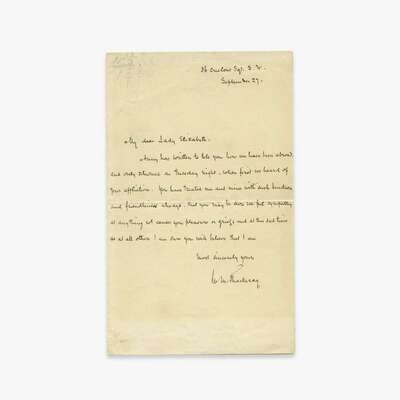 36 Onslow Sqr. S. W.
September 27.
My dear Lady Elizabeth.
Anny has written to tell you how we have been abroad,
and only returned on Tuesday night, when first we heard of
your affliction. You have treated me and mine with such kindness
and friendliness always, that you may be sure we feel sympathy
at anything wh causes you pleasure or grief; and at this sad time
as at all others I am sure you will believe that I am
most sincerely yours
W M Thackeray